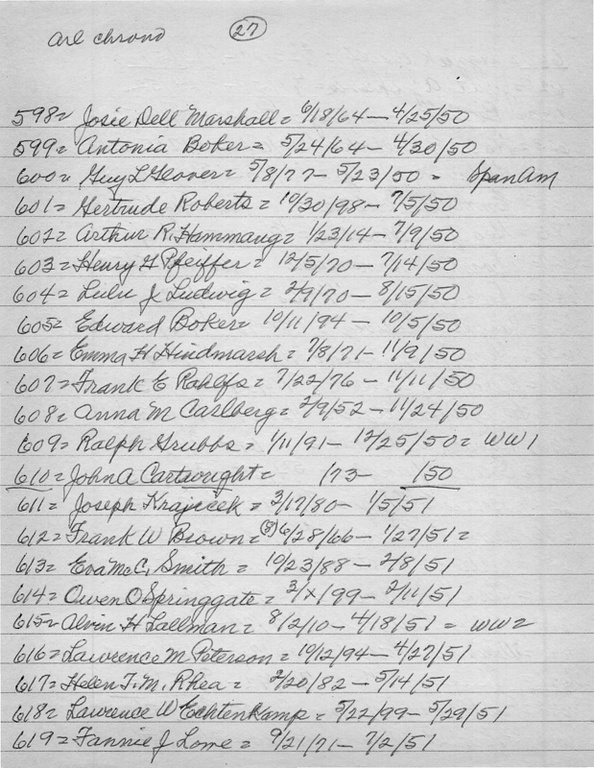 Arl chrono 27
598= Josie Dell Marshall = 6/18/64 - 4/25/50
599= Antonia Boker = 5/24/64 - 4/30/50
600= Guy L Glover = 5/8/77 - 5/23/50 = Span Am
601= Gertrude Roberts = 10/30/98 - 7/5/50
602= Arthur R. Hammaug = 1/23/14 - 7/9/50
603= Henry G Pfeiffer = 12/5/70 - 7/14/50
604= Lulu J Ludwig = 2/9/70 - 8/15/50
605= Edward Boker = 10/11/94 - 10/5/50
606= Emma H Hindmarsh = 7/8/71 - 11/9/50
607= Frank E Rahlfs = 7/22/76 - 11/11/50
608= Anna M Carlberg = 2/9/52 - 11/24/50
609= Ralph Grubbs = 1/11/91 - 12/25/50 = WW1
610= John A Cartwright = /73 - /50
611= Joseph Krajicek = 3/17/80 - 1/5/51
612= Frank W Brown = (8) 6/28/66 - 1/27/51 =
613= Eva McC. Smith = 10/23/88 - 2/8/51
614= Owen O Springgate = 2/x/99 - 2/11/51
615= Alvin H Lallman = 8/2/10 - 4/18/51 = WW2
616= Lawrence M Peterson = 10/12/94 - 4/27/51
617= Helen T. M. Rhea = 2/20/82 - 5/14/51
618= Lawrence W Echtenkamp = 5/22/99 - 5/29/51
619= Fannie J Lome = 9/21/71 - 7/2/51